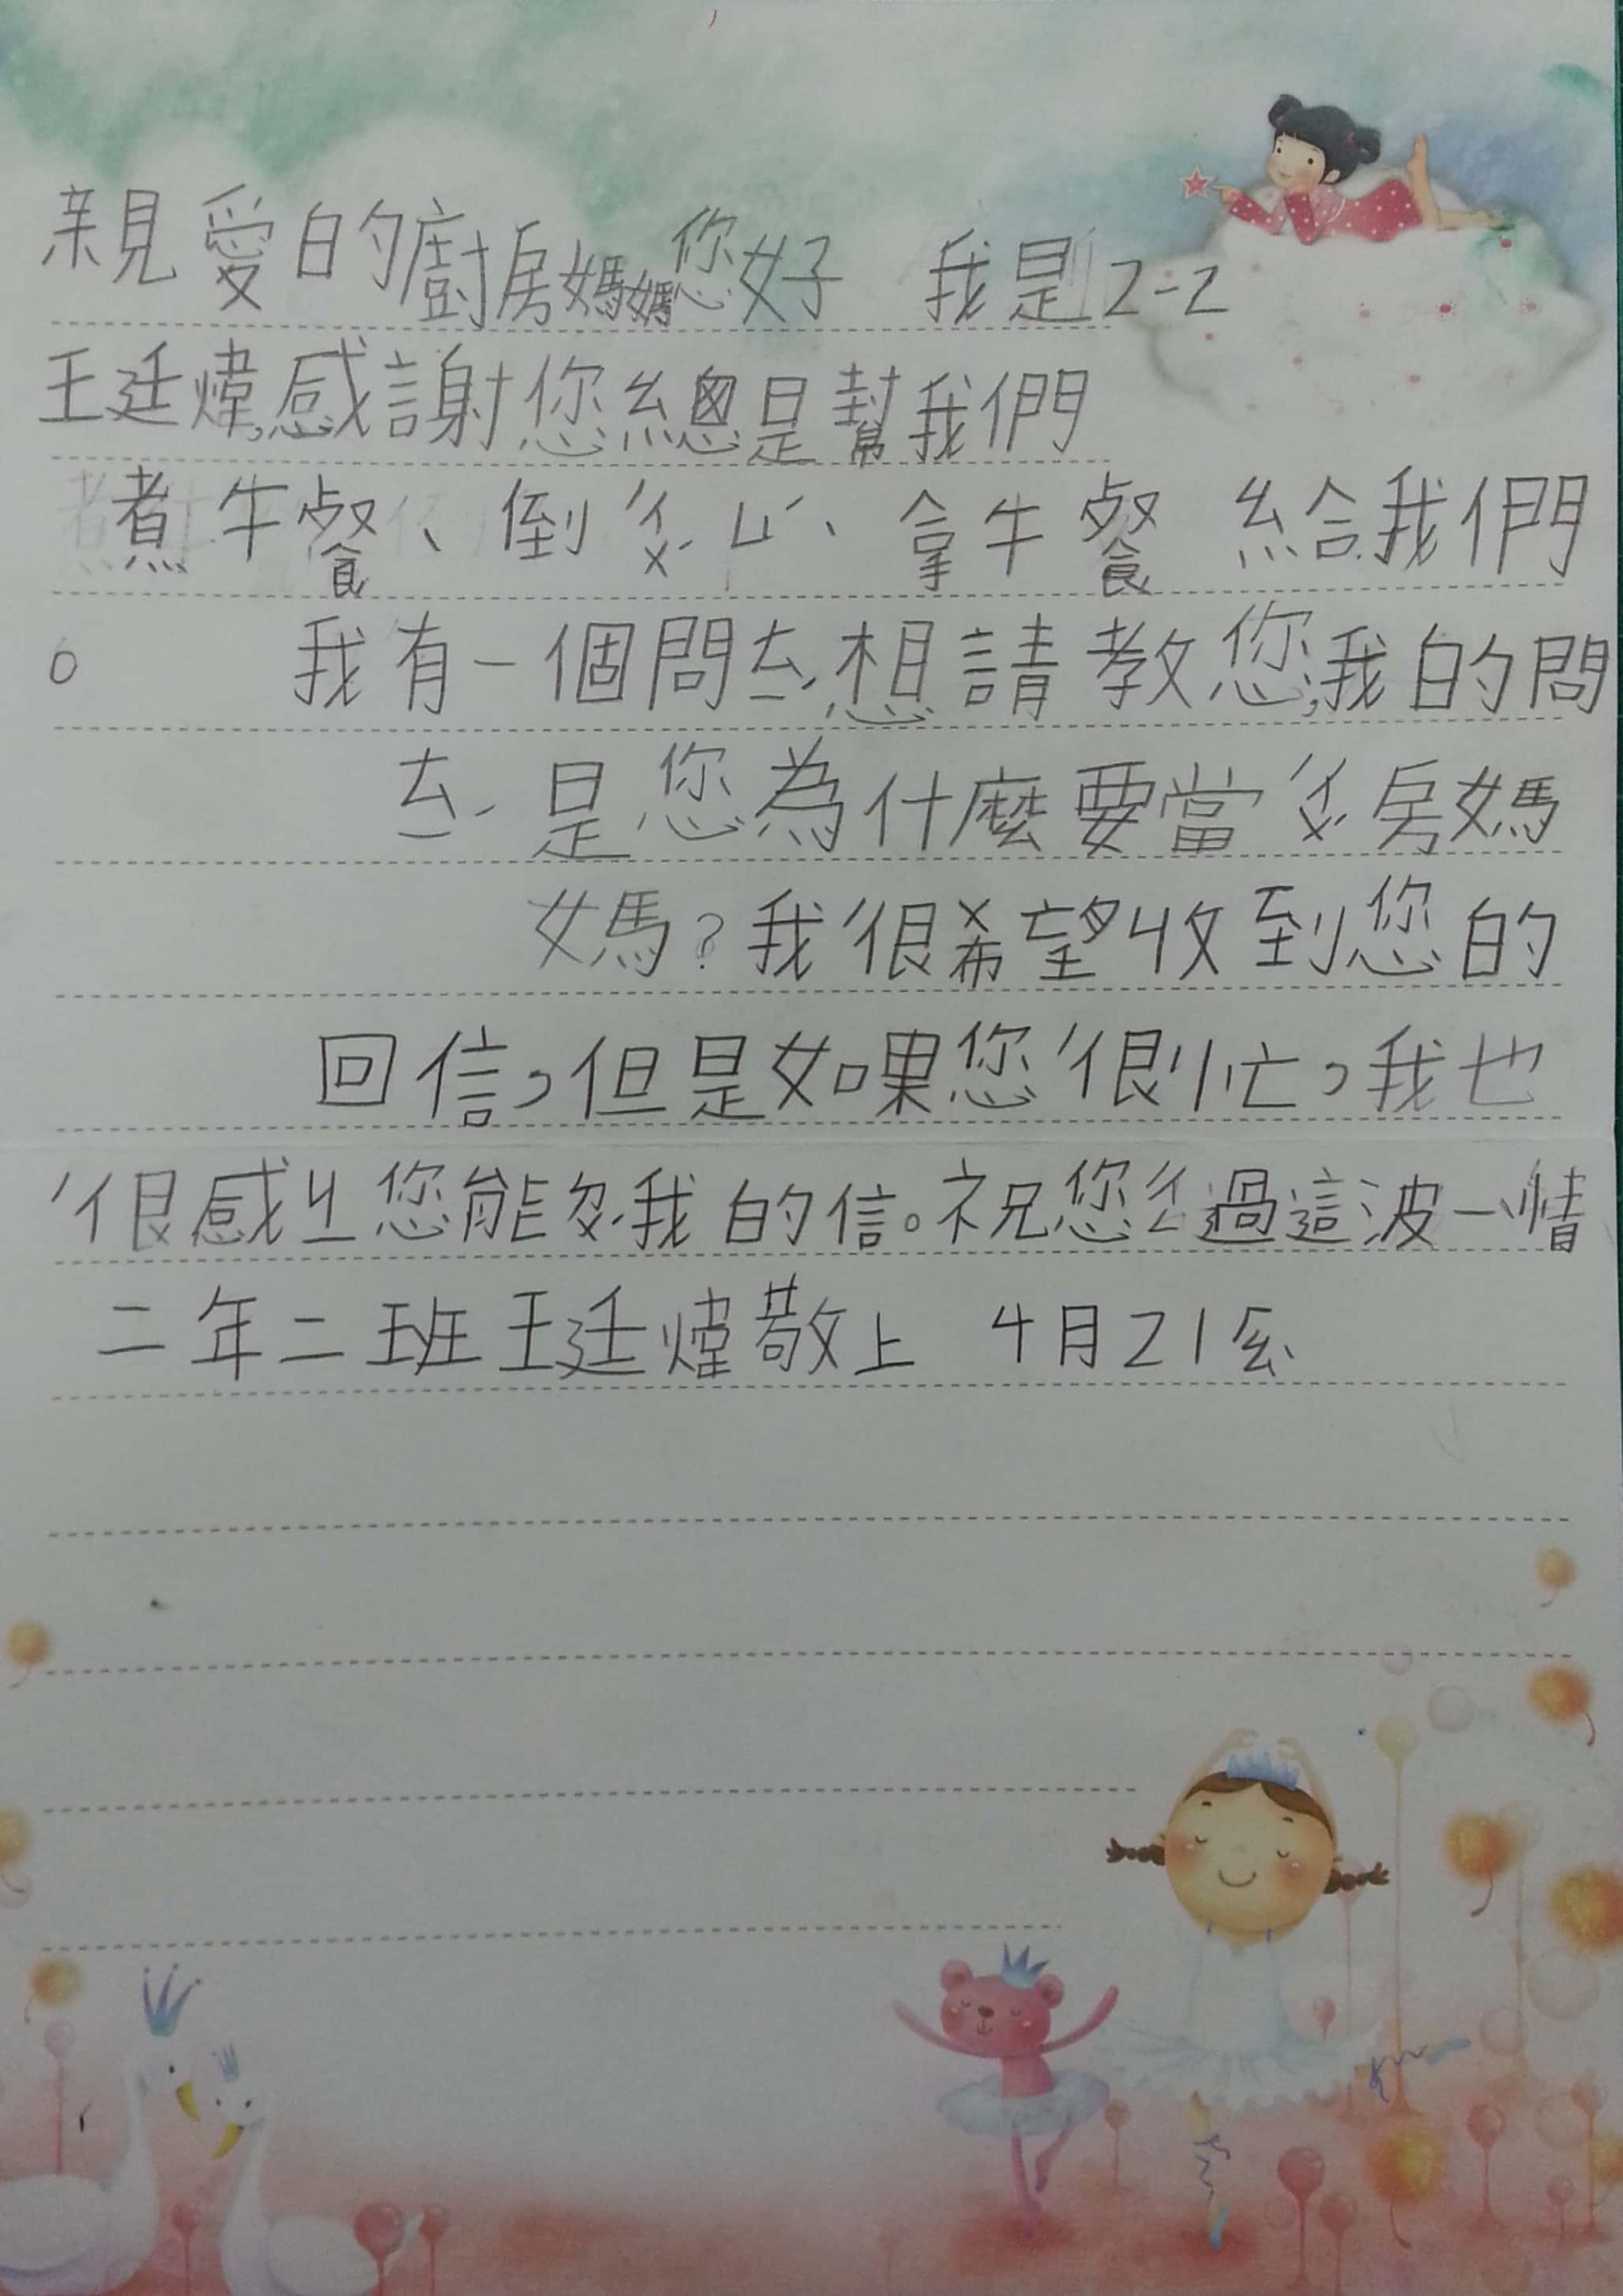 親愛的廚房媽媽您好 我是2-2
王廷煒,感謝您總是幫我們
煮午餐、倒ㄔㄨˊㄩˊ、拿午餐 給我們
。 我有一個問ㄊㄧˊ,想請教您,我的問
ㄊㄧˊ是您為什麼要當ㄔㄨˊ房媽
媽?我很希望收到您的
回信,但是如果您很忙,我也
很感ㄐㄧ您能 我的信。祝您 過這波一情
二年二班王廷煒敬上 4月21